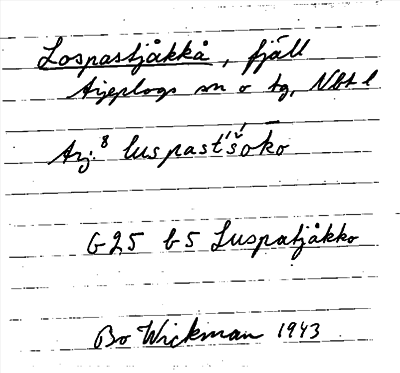 Lospastjåkkå, fjäll
Arjeplogs sn o tg, Nbt l
Arj:8 luspast́š́ōkо
G25 b5 Luspatjåkko
Bo Wickman 1943